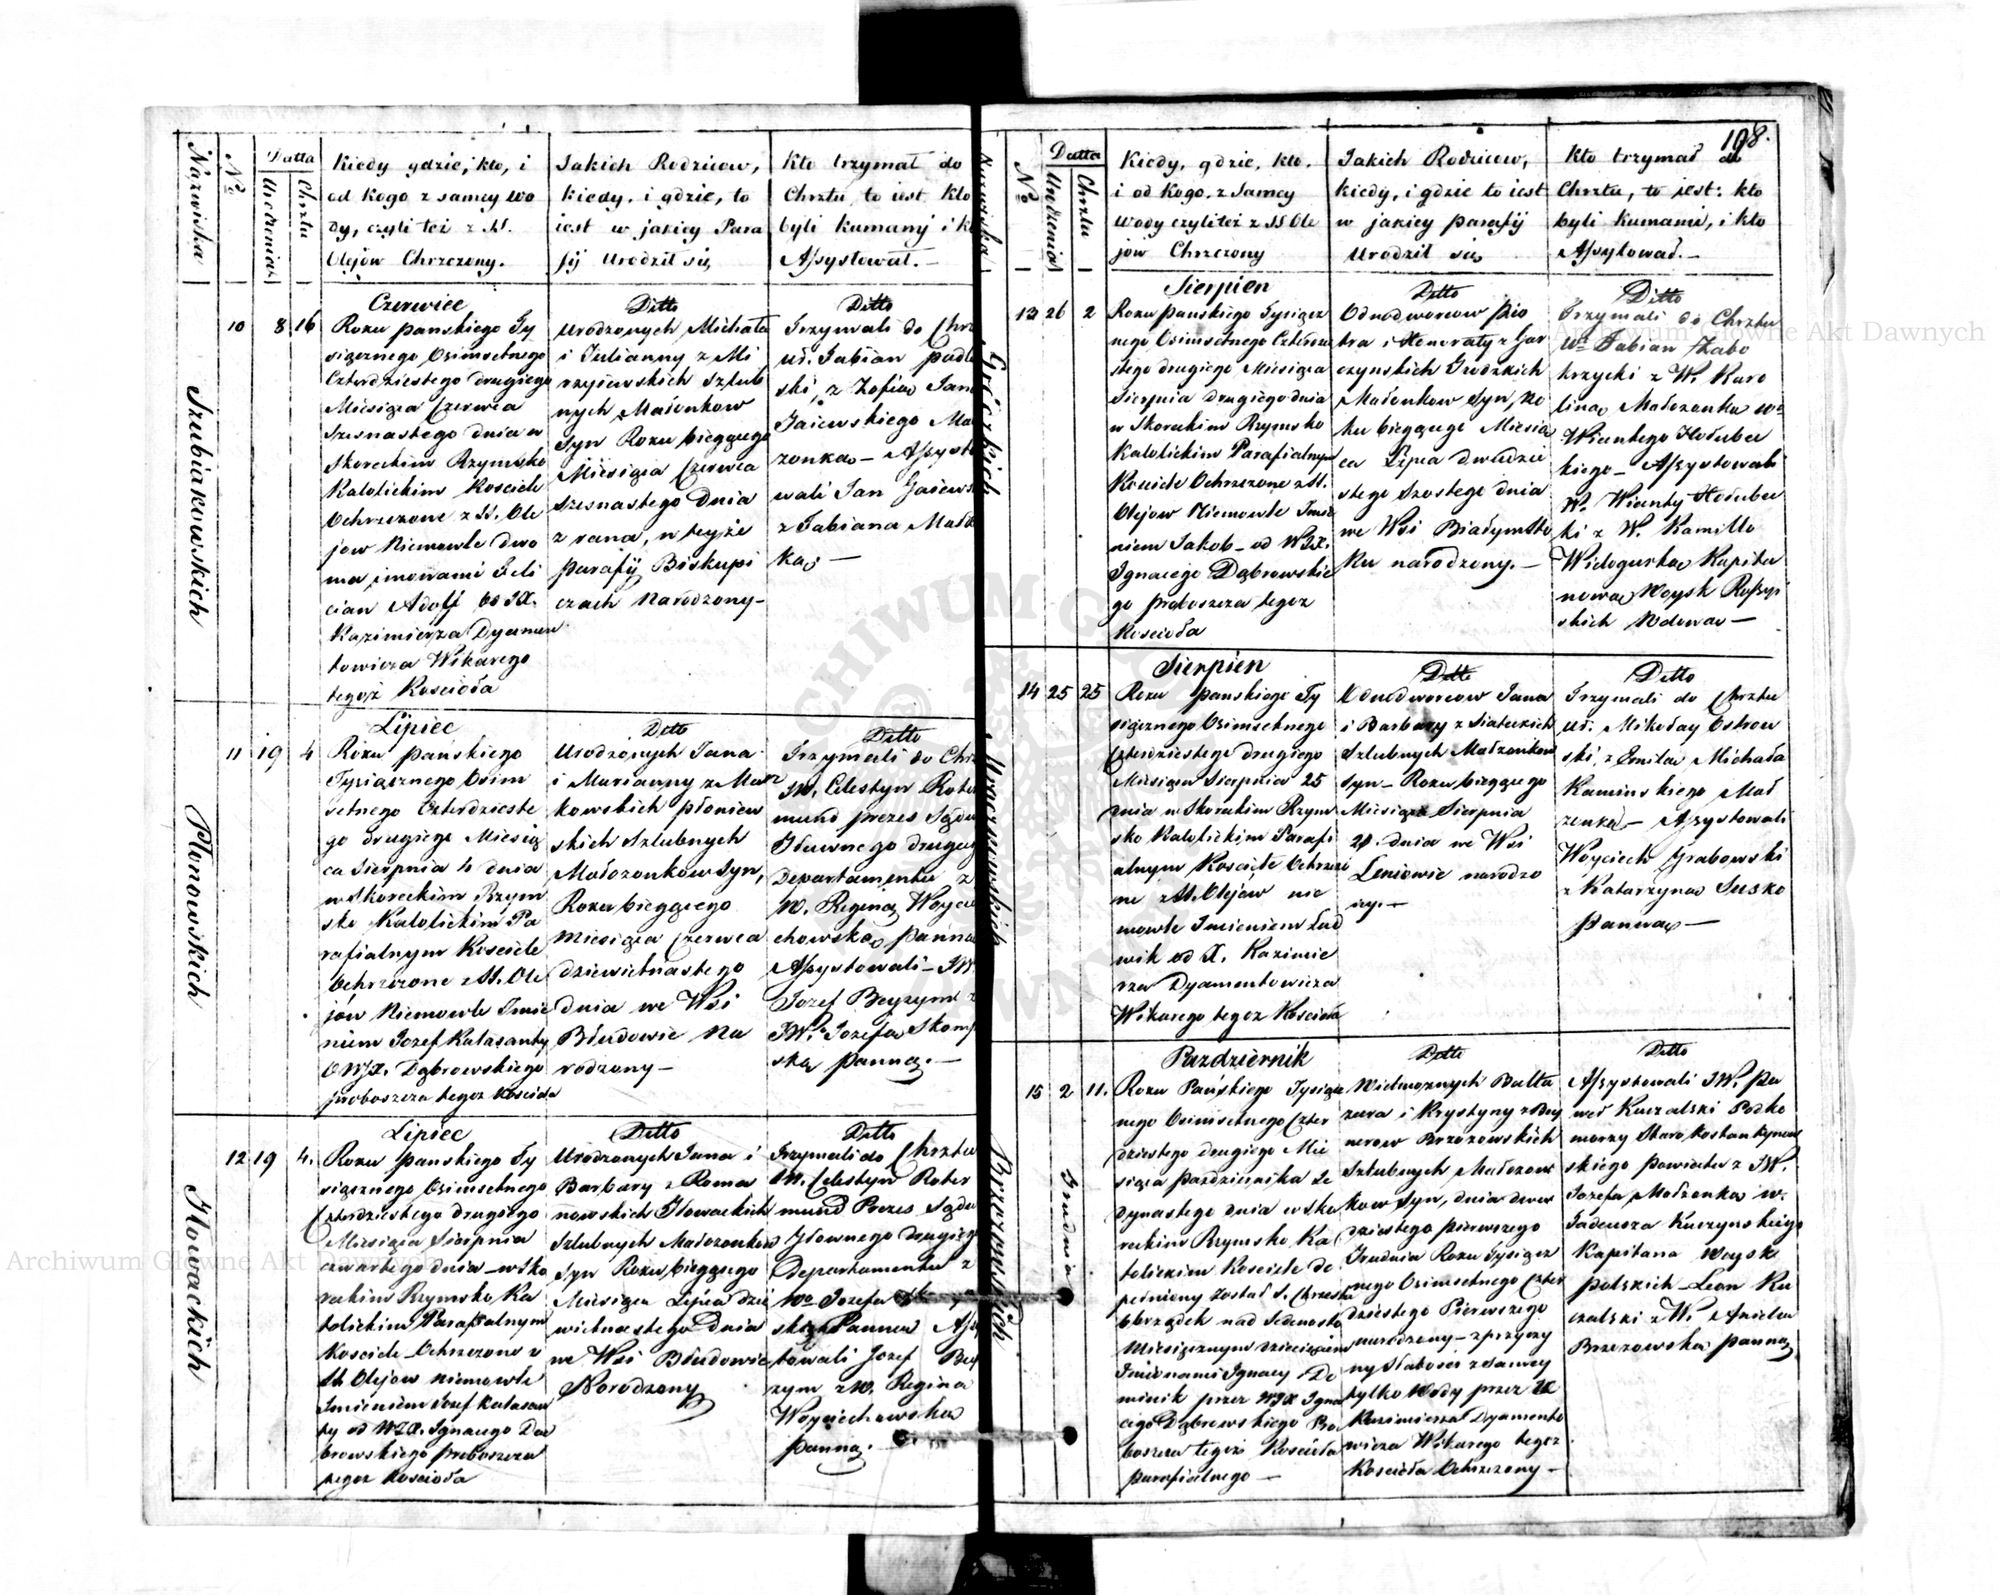 198.
Nazwiska
No
Datta
Urodzenia
Chrztu
Kiedy gdzie, kto, i
od kogo z samey wo
dy, czyli też z SS.
Olejów Chrzczony.
Jakich Rodziców,
kiedy, i gdzie, to
iest w jakiey Para
fij urodził się
Kto trzymał do
Chrztu, to iest kto
byli kumamy i k
Assystował.
Szubiakowskich
10
8
16
Czerwiec
Roku Pańskiego Ty
siącznego Osimsetnego
Czterdziestego drugiego
Miesiąca Czerwca
szesnastego dnia w
Skoreckim Rzymsko
Katolickim Kosciele
Ochrzczone z SS. Ole
jow Niemowle dwo
ma imionami Feli
cian Adolf od JX.
Kazimierza Dyamen
towicza Wikarego
tegoż Kosciola
Ditto
Urodzonych Michała
i Julianny z Mi
Szlub
nych Małżonkow
Syn Roku bieżącego
Miesiąca Czerwca
szesnastego dnia
z rana, w teyże
Parafij Biskupi
czach Narodzony
Ditto
Trzymali do Chrz
ur. Fabian Podle
ski, z Zofią Jana
Gaiewskiego Mał
żonką Assysto
wali Jan Gaiews
z Fabiana Małżo
ką
Płoniowskich
11
19
4
Lipiec
Roku Pańskiego
Tysiącznego Osim
setnego Czterdzieste
go drugiego Miesią
ca Sierpnia 4 dnia
w Skoreckim Rzym
sko Katolickim Pa
rafialnym Kosciele
Ochrzczone z SS. Ole
jów Niemowle Imie
niem Jozef Kalasanty
Dąbrowskiego
Proboszcza tegoz Kosciola
Ditto
Urodzonych Jana
i Marianny z Mar
kowskich Płoniew
skich Szlubnych
Małżonków Syn,
Roku bieżącego
Miesiąca Czerwca
dziewietnastego
dnia we Wsi
Błudowie Na
rodzony
Ditto
Trzymali do Chrz
JW. Celestyn Roter
mund Prezes Sądu
Głównego drugie
Departamentu z
W. Reginą Woycie
chowską Panną
Assystowali JW.
Jozef Beyzym z
JW. Jozefą Skomp
ską Panną.
Głowackich
12
19
4.
Lipiec
Roku Pańskiego Ty
siącznego Osimsetnego
Czterdziestego drugiego
Miesiąca Sierpnia
czwartego dnia w Sko
reckim Rzymsko Ka
tolickim Parafialnym
Kosciele Ochrzczone z
SS. Olejow niemowle
Imieniem Jozef Kalasan
ty od WJX. Ignacego Dą
browskiego Proboszcza
tegoz Kosciola
Ditto
Urodzonych Jana i
Barbary z Roma
nowskich Głowackich
Szlubnych Małżonkow
Syn Roku bieżącego
Miesiąca Lipca dzie
wietnastego dnia
we Wsi Błudowie
Narodzony
Ditto
Trzymali do Chrztu
JW. Celestyn Roter
mund Prezes Sądu
Głownego drugiego
Departamentu z
Jozefą
Panną Assys
towali Jozef Bey
zym z W. Regina
Woyciechowską
Panną.
Nazwiska
No
Datta
Urodzenia
Chrztu
Kiedy, gdzie, kto,
i od kogo, z samey
wody czyli też z SS Ole
jów Chrzczony
Jakich Rodziców,
kiedy, i gdzie to iest
w jakiey Parafij
urodził się
Kto trzymał do
Chrztu, to jest: kto
byli kumami, i kto
Assystował.
13
26
2
Sierpien
Roku Pańskiego Tysiącz
nego Osimsetnego Czterdzie
stego drugiego Miesiąca
Sierpnia drugiego dnia
w Skoreckim Rzymsko
Katolickim Parafialnym
Kosciele Ochrzczone z SS.
Olejow Niemowle Imie
niem Jakob od WJX.
Ignacego Dąbrowskie
go Proboszcza tegoz
Kosciola
Ditto
Odnodworcow Pio
tra i Honoraty z Gor
czynskich Grodzkich
Małżonkow Syn, Ro
ku bieżącego Miesią
ca Lipca dwudzie
stego szostego dnia
we Wsi Białymsto
ku narodzony.
Ditto
Trzymali do Chrztu
Fabian Zabo
krzycki z W. Karo
liną Małżonką
Wicentego Hołubec
kiego Assystowali
W. Wicenty Hołubec
ki z W. Kamillą
Widogurską Kapita
nową Woysk Rossyi
skich Wdową
14
25
25
Sierpien
Roku Pańskiego Ty
siącznego Osimsetnego
Czterdziestego drugiego
Miesiąca Sierpnia 25
dnia w Skoreckim Rzym
sko Katolickim Parafi
alnym Kosciele Ochrzczo
ne z SS. Olejów nie
mowle Imieniem Lud
wik od X. Kazimie
rza Dyamentowicza
Wikarego tegoz Kosciola
Ditto
Odnodworcow Jana
i Barbary z Siateckich
Szlubnych Małżonkow
Syn Roku bieżącego
Miesiąca Sierpnia
dnia we Wsi
Leniowie narodzo
ny.
Ditto
Trzymali do Chrztu
ur. Mikołay Ostrow
ski, z Emilią Michała
Kaminskiego Mał
żonką Assystowali
Woyciech Grabowski
z Katarzyną Susko
Panną
Brzozowskich
15
2
Grudnia
11.
Pazdziernik
Roku Pańskiego Tysiącz
nego Osimsetnego Czter
dziestego drugiego Mie
siąca Pazdziernika Je
dynastego dnia w Sko
reckim Rzymsko Ka
tolickim Kosciele do
pełniony został S. Chrztu
Obrządek nad Jedenasto
Miesięcznym dziecięciem
Imionami Ignacy Do
minik przez WJX Igna
cego Dąbrowskiego Pro
boszcza tegoż Kosciola
Parafialnego
Ditto
Wielmożnych Balta
zara i Krystyny z Bey
nerow Brzozowskich
Szlubnych Małżon
kow Syn, dnia dwu
dziestego pierwszego
Grudnia Roku Tysiącz
nego Osimsetnego Czter
dziestego Pierwszego
narodzony z przyczy
ny słabosci z samey
tylko Wody przez JX
Kazimierza Dyamento
wicza Wikarego tegoz
Kosciola Ochrzczony
Ditto
Assystowali JW. Pa
weł Kuczalski Podko
morzy Staro Konstantynow
skiego Powiatu z JW.
Jozefą Małżonką W.
Tadeusza Kuczynskiego
Kapitana Woysk
Polskich Leon Ku
czalski z W. Anielą
Brzozowską Panną
Archiwum Główne Akt Dawnych
Archiwum Główne Akt Dawnych
ARCHIWUM GŁÓWNE AKT DAWNYCH